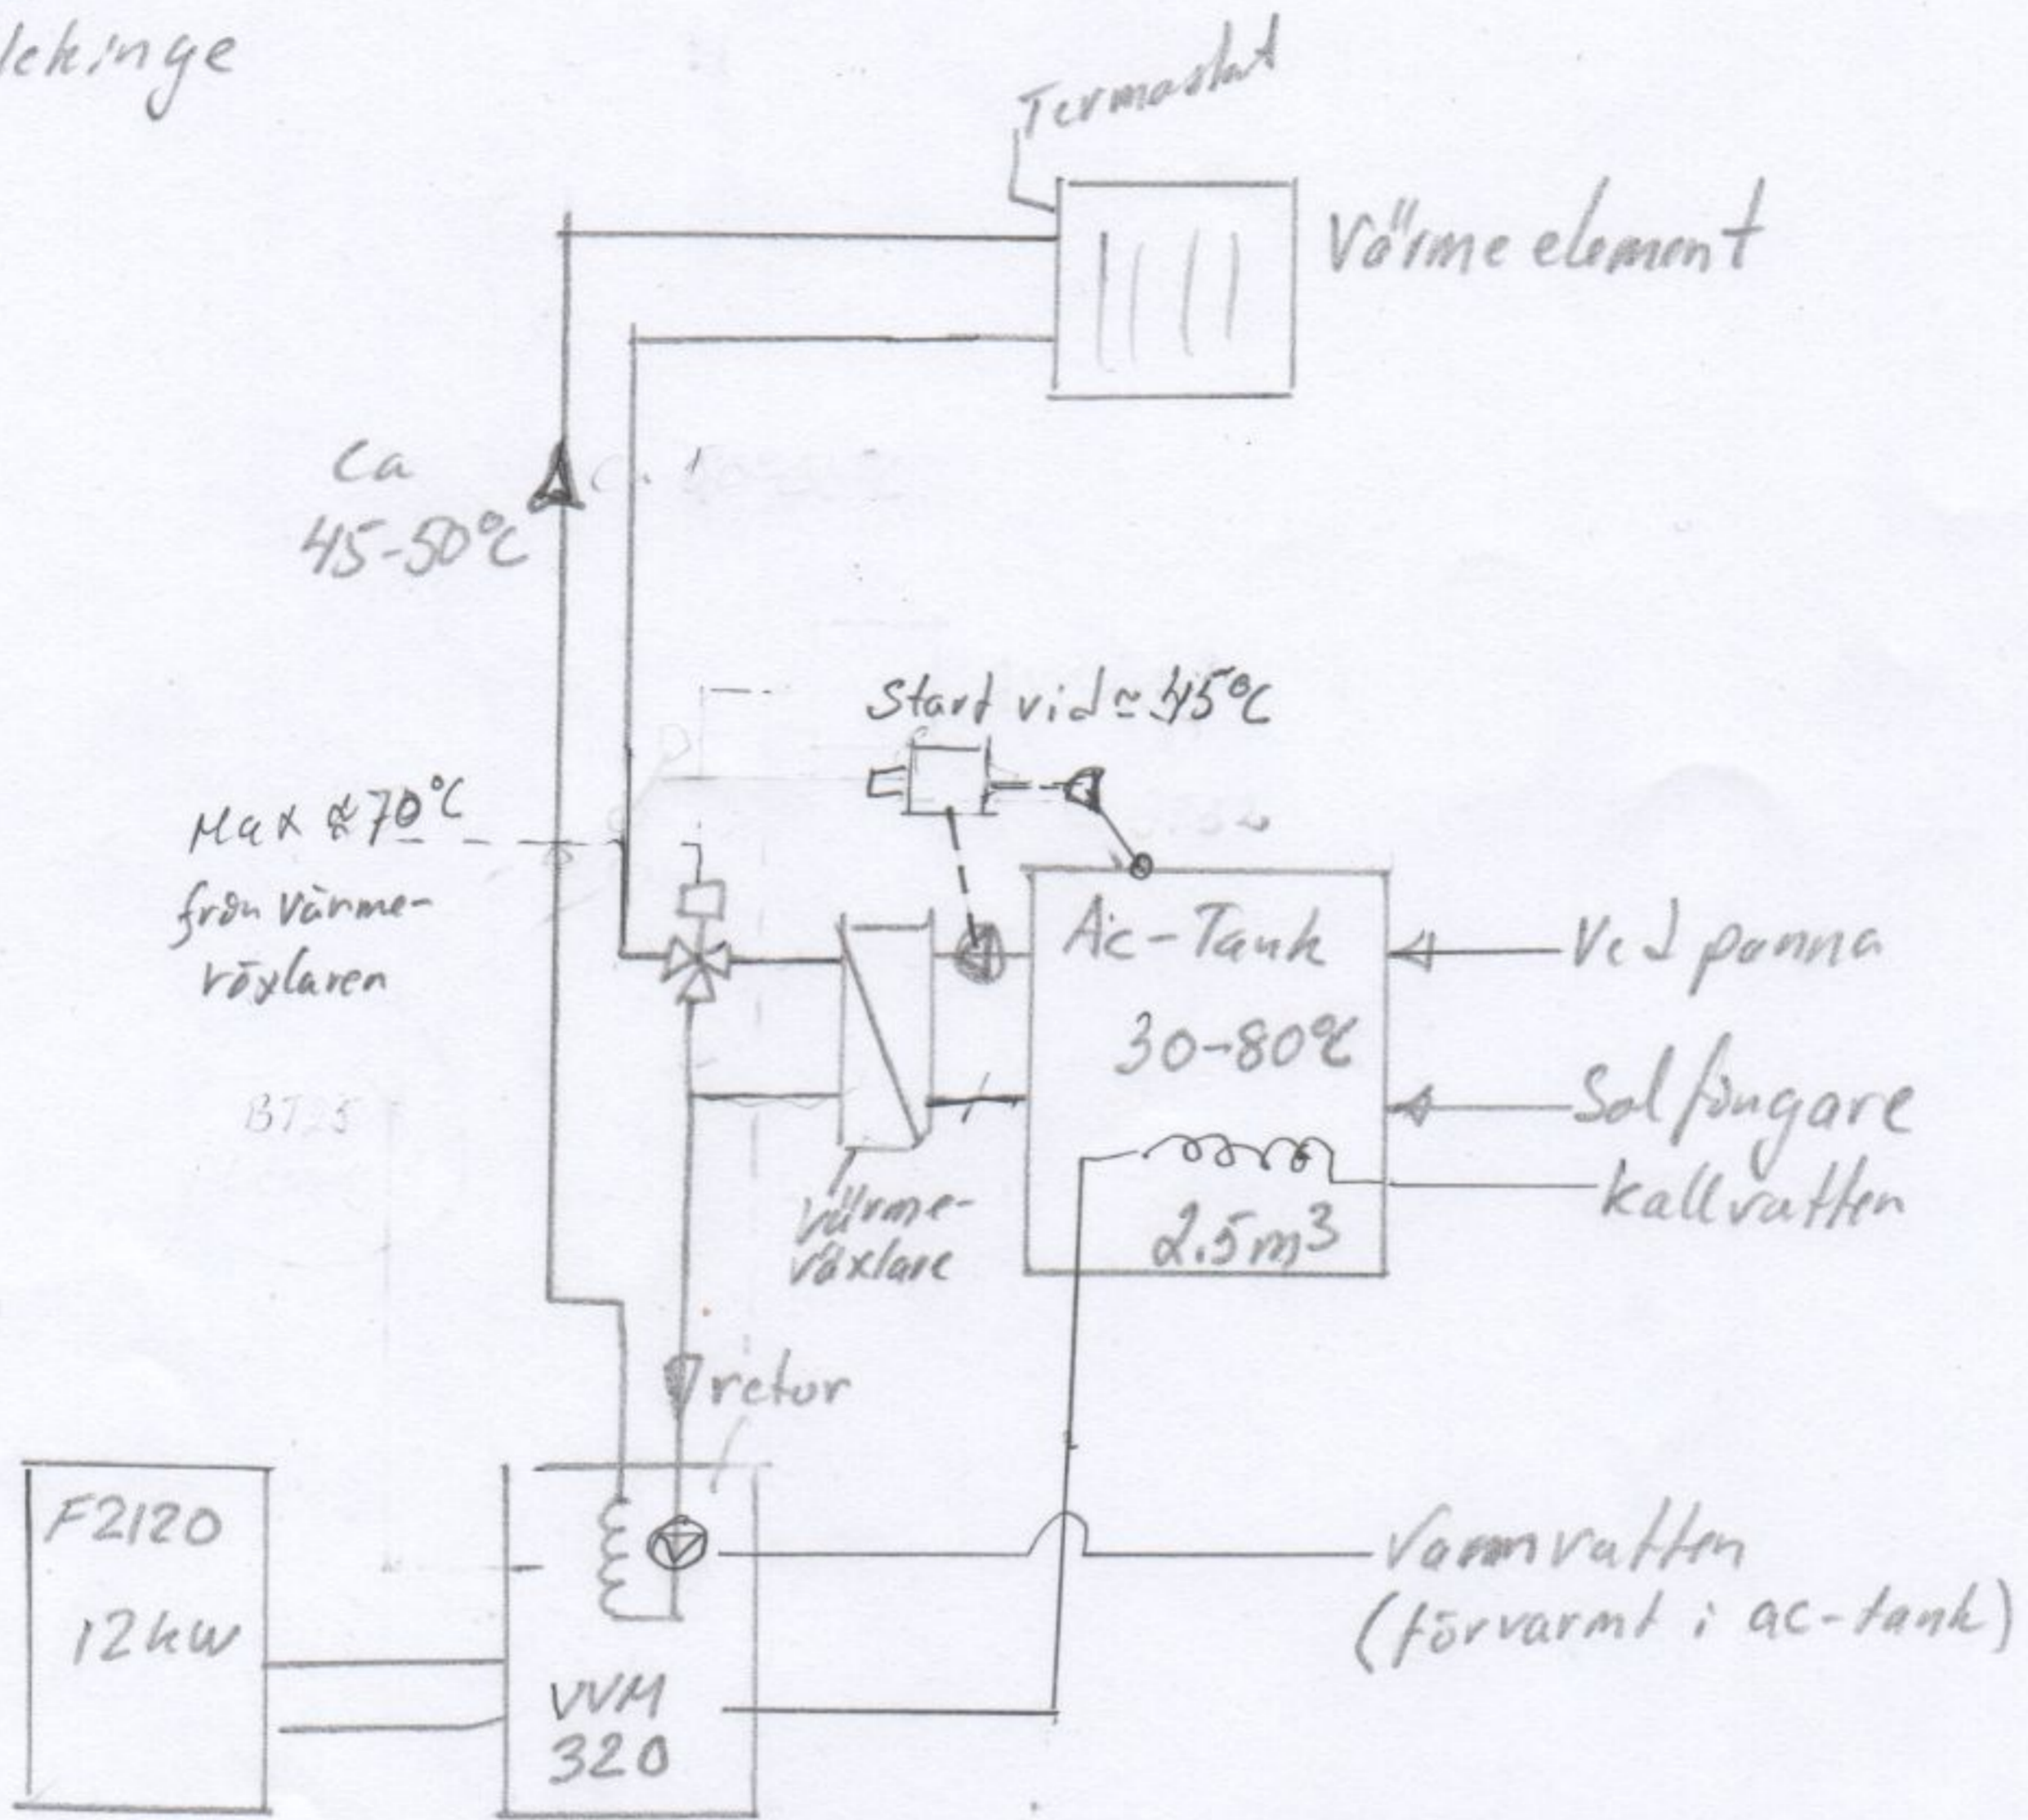 lekinge
Termostat
Värme element
Ca
45-50°C
Start vid ≈ 45°C
Max ≈ 70°C
från Värme-
växlaren
Ac-Tank
30-80°C
2.5m³
Ved panna
Solfångare
kallvatten
BT25
Värme-
växlare
retur
F2120
12kW
VVM
320
Varmvatten
(förvarmt i ac-tank)